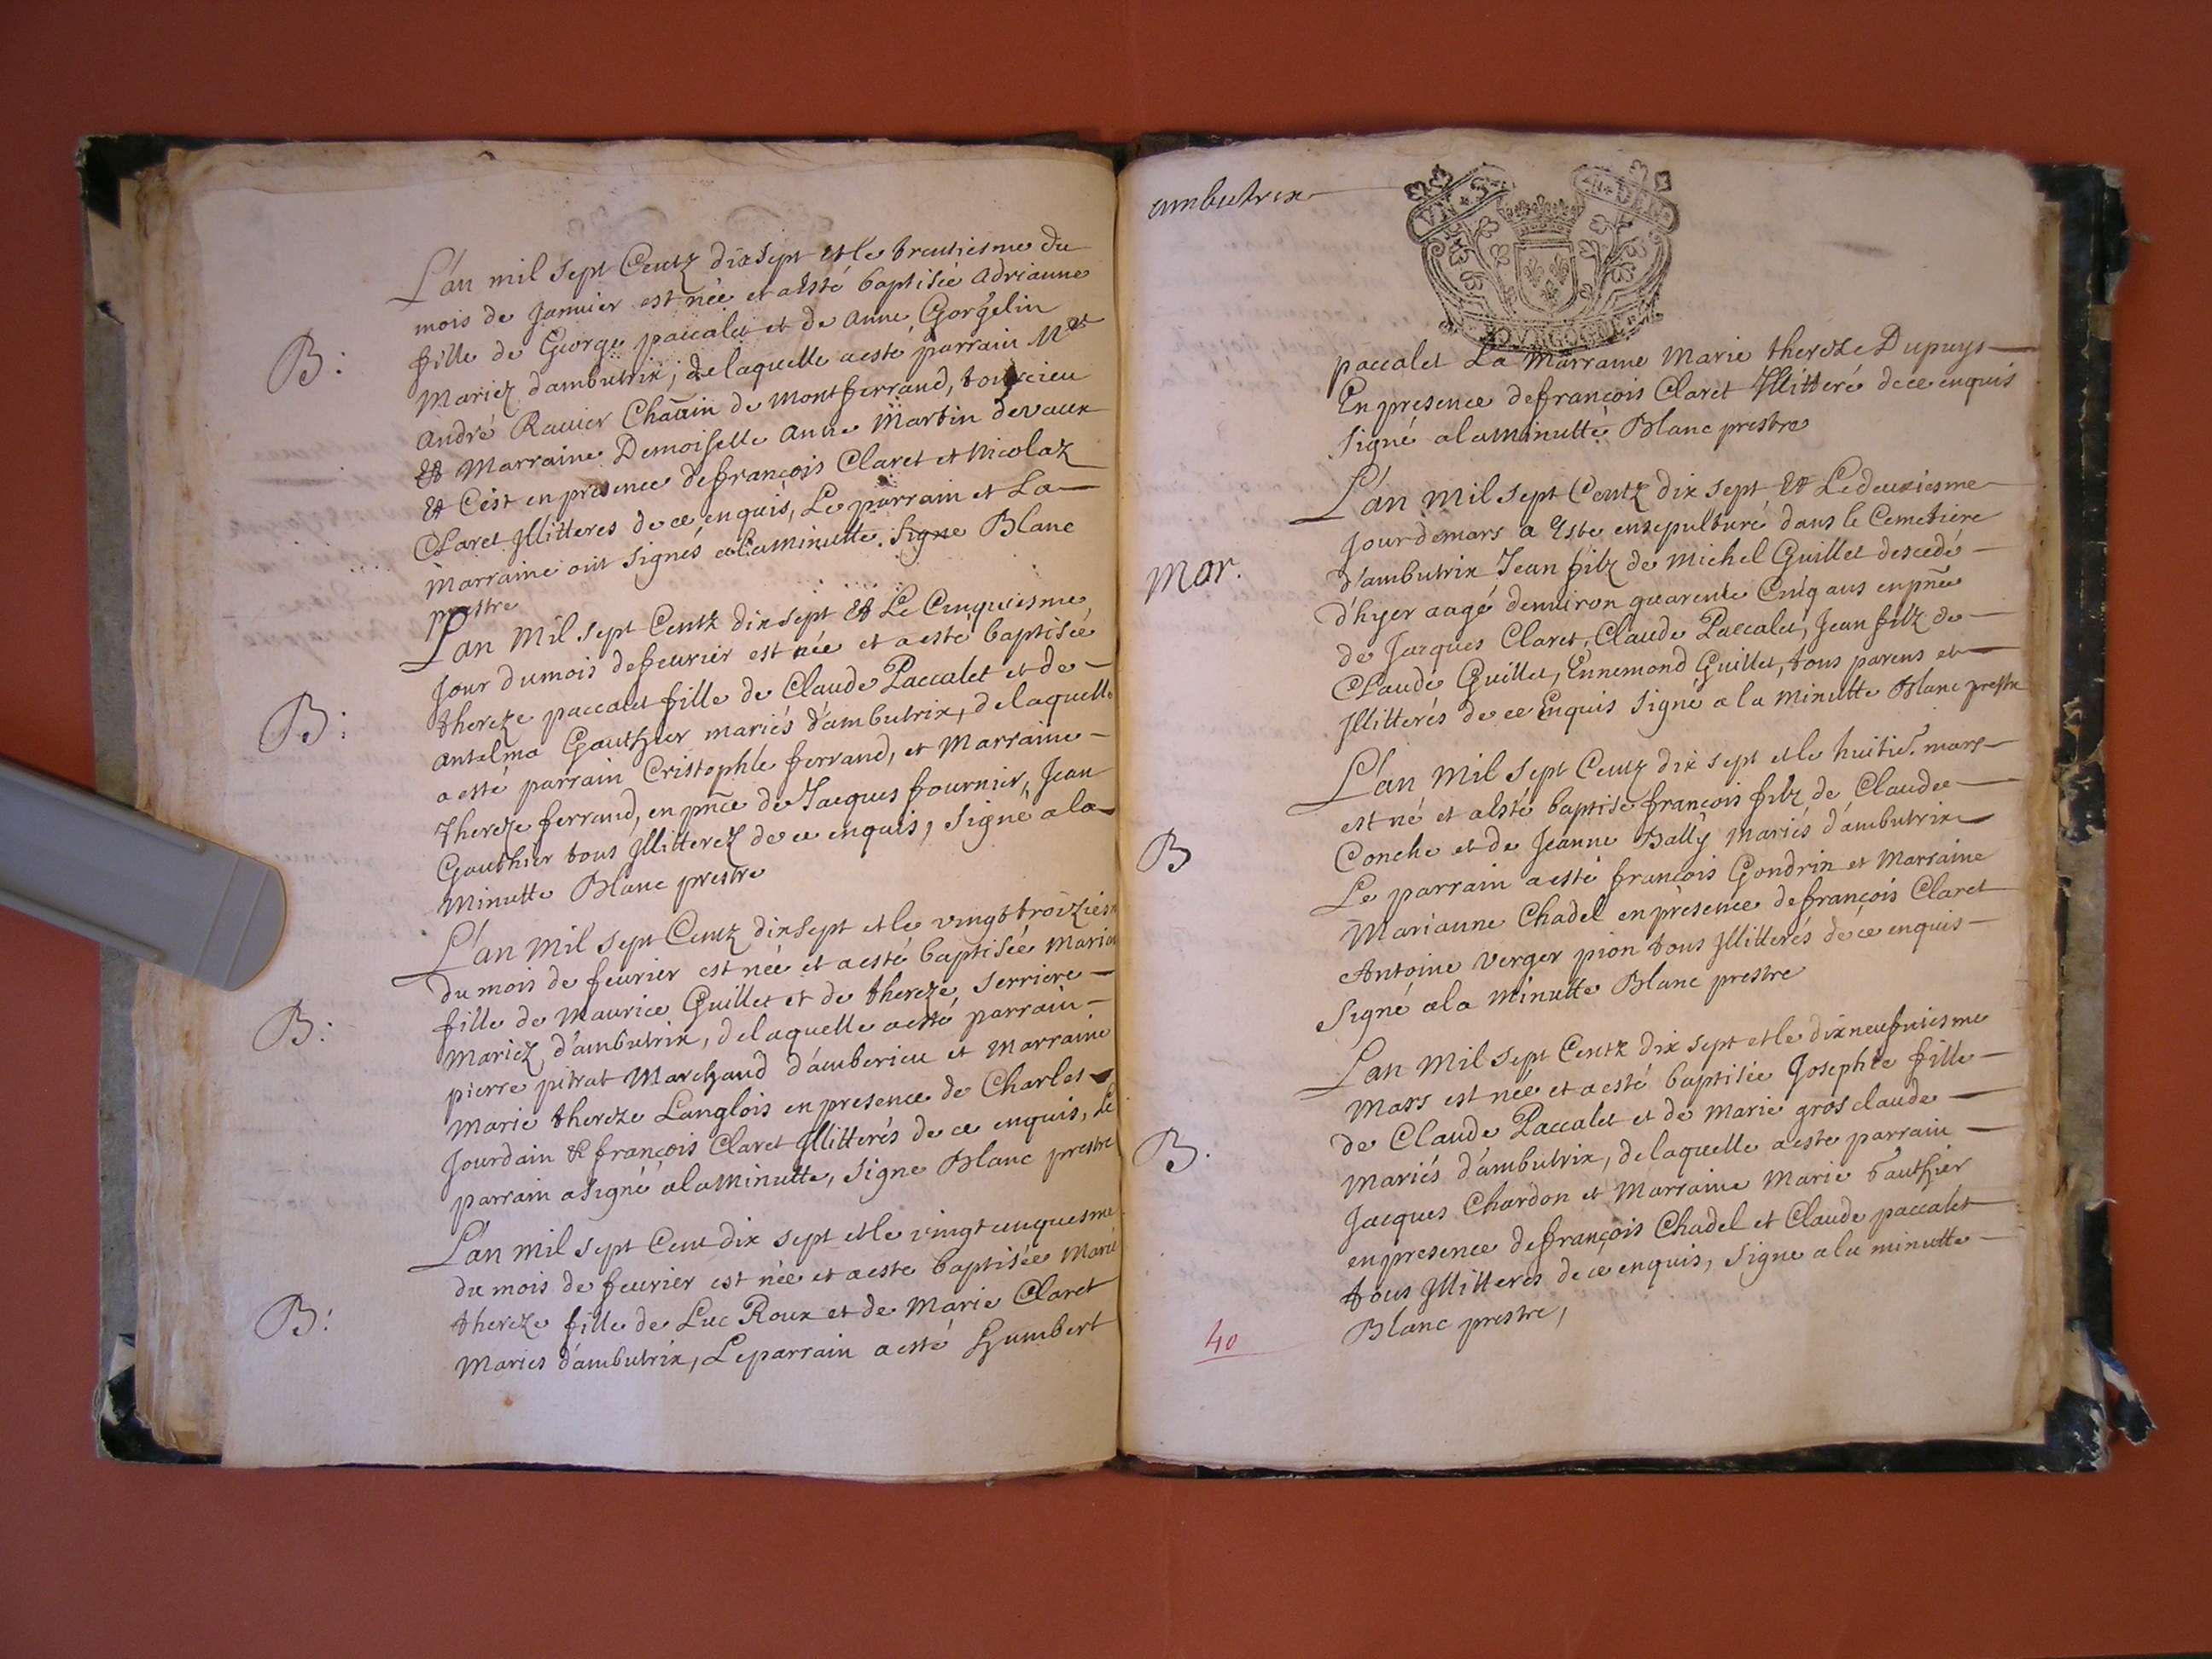 L'an mil sept Centz dix sept et le trentiesme du
mois de Janvier est née et a esté baptisée adrianne
fille de George paccalet et de anne Gorgelin
B:
Mariez d'ambutrix; de laquelle a esté parrain Mre
andré Ravier Chãtain de montferrand, torcieu
Et Marraine Demoiselle anne Martin devaux
Et C'est en presence de françois Claret et Nicolaz
Claret Illitteres de ce enquis, Le parrain et La
Marraine ont Signés a la minutte. Signe Blanc
prestre
L'an Mil sept Centz dix sept Et Le Cinquiesme
Jour du mois de feuvrier est née et a esté baptisée
thereze paccalet fille de Claude Paccalet et de
B:
antelma Gauthier mariés d'ambutrix, de laquelle
a esté parrain Cristophle ferrand, et Marraine
Thereze ferrand, en pñce de Jacques fournier, Jean
Gauthier tous Illitterez de ce enquis, Signé a la
Minutte Blanc prestre
L'an Mil sept Centz dix sept et le vingt troiziesm
du mois de feuvrier est née et a esté baptisée Maria
fille de Maurice Guillet et de thereze Serriere
B:
Mariez d'ambutrix, de laquelle a esté parrain
pierre pitrat Marchand d'amberieu et Marraine
Marie thereze Langlois en presence de Charles
Jourdain & françois Claret Illitterés de ce enquis, Le
parrain a signé a la Minutte, Signe Blanc prestre
L'an mil sept Cent dix sept et le vingt cinquesme
du mois de feuvrier est née et a este baptisée Marie
thereze fille de Luc Roux et de Marie Claret
B:
Maries d'ambutrix, Le parrain a esté Humbert
ambutrix
BOVRGOGNE
paccalet La Marraine Marie thereze Dupuys
En presence de françois Claret Illitteré de ce enquis
Signé a la Minutté Blanc prestre
L'an Mil sept Centz dix sept Et Le deuxiesme
Jour de mars a Este ensepulturé dans le Cemetiere
Mor.
d'ambutrix Jean filz de Michel Guillet descedé
d'hyer aagé denuiron quarente Cinq ans en pñce
de Jacques Claret, Claude Paccalet, Jean filz de
Claude Guillet, Ennemond Guillet, tous parens et
Illitterés de ce Enquis Signe a la minutte Blanc prestre
L'an Mil sept Centz dix sept et le huitie. mars
est né et a Esté baptise francois filz de Claude
B
Conche et de Jeanne Bally Mariés d'ambutrix
Le parrain a esté francois Gondrin et Marraine
Marianne Chadel en presence de françois Claret
Antoine Verger pion tous Illitterés de ce enquis
Signé a la Minutte Blanc prestre
L'an Mil sept Centz dix sept et le dix neufviesme
Mars est née et a esté baptisée Josephte fille
de Claude Paccalet et de Marie gros claude
B.
Mariés d'ambutrix, de laquelle a este parrain
Jacques Chardon et Marraine Marie Gauthier
en presence de françois Chadel et Claude paccalet
tous Illitteres de ce enquis, Signe a la minutte
Blanc prestre,
40